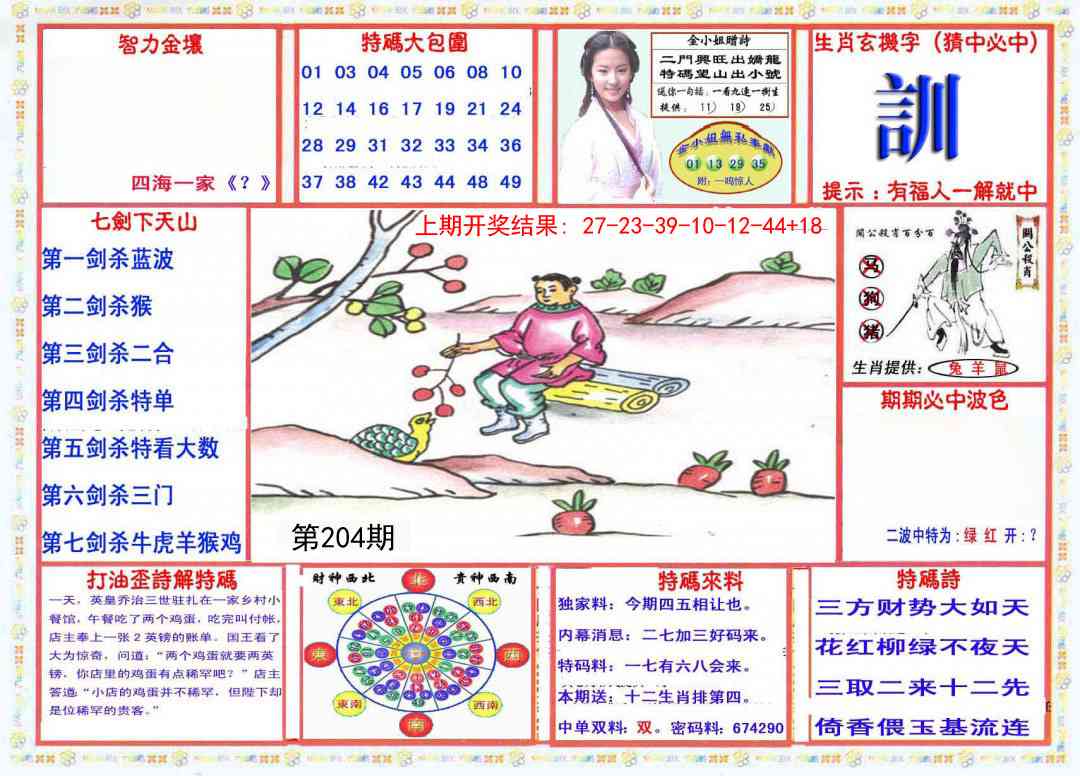 智力金壤
四海一家《？》
特碼大包圍
01 03 04 05 06 08 10
12 14 16 17 19 21 24
28 29 31 32 33 34 36
37 38 42 43 44 48 49
金小姐贈詩
二門興旺出嬌龍
特碼望山出小號
送你一句話：一看九連一樹生
提供：11） 19） 25）
金小姐無私奉獻
01 13 29 35
附：一鸣惊人
生肖玄機字（猜中必中）
訓
提示：有福人一解就中
七劍下天山
第一剑杀蓝波
第二剑杀猴
第三剑杀二合
第四剑杀特单
第五剑杀特看大数
第六剑杀三门
第七剑杀牛虎羊猴鸡
上期开奖结果：27-23-39-10-12-44+18
第204期
關公殺肖百分百
關公殺肖
马
狗
猪
生肖提供：兔 羊 鼠
期期必中波色
二波中特为：绿 红 开：？
打油歪詩解特碼
一天，英皇乔治三世驻扎在一家乡村小
餐馆，午餐吃了两个鸡蛋，吃完叫付帐，
店主奉上一张2英镑的账单。国王看了
大为惊奇，问道：“两个鸡蛋就要两英
镑，你店里的鸡蛋有点稀罕吧？”店主
答道：“小店的鸡蛋并不稀罕，但陛下却
是位稀罕的贵客。”
財神西北 貴神西南
北
東北 西北
東 西
東南 西南
南
特碼來料
独家料：今期四五相让也。
内幕消息：二七加三好码来。
特码料：一七有六八会来。
本期送：十二生肖排第四。
中单双料：双。密码料：674290
特碼詩
三方财势大如天
花红柳绿不夜天
三取二来十二先
倚香偎玉基流连